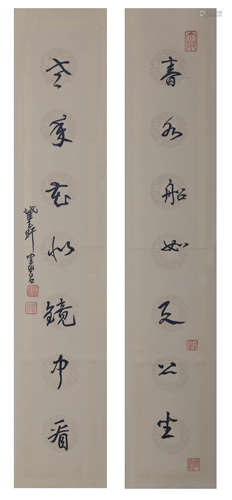 春水船如天上坐
老年花似鏡中看